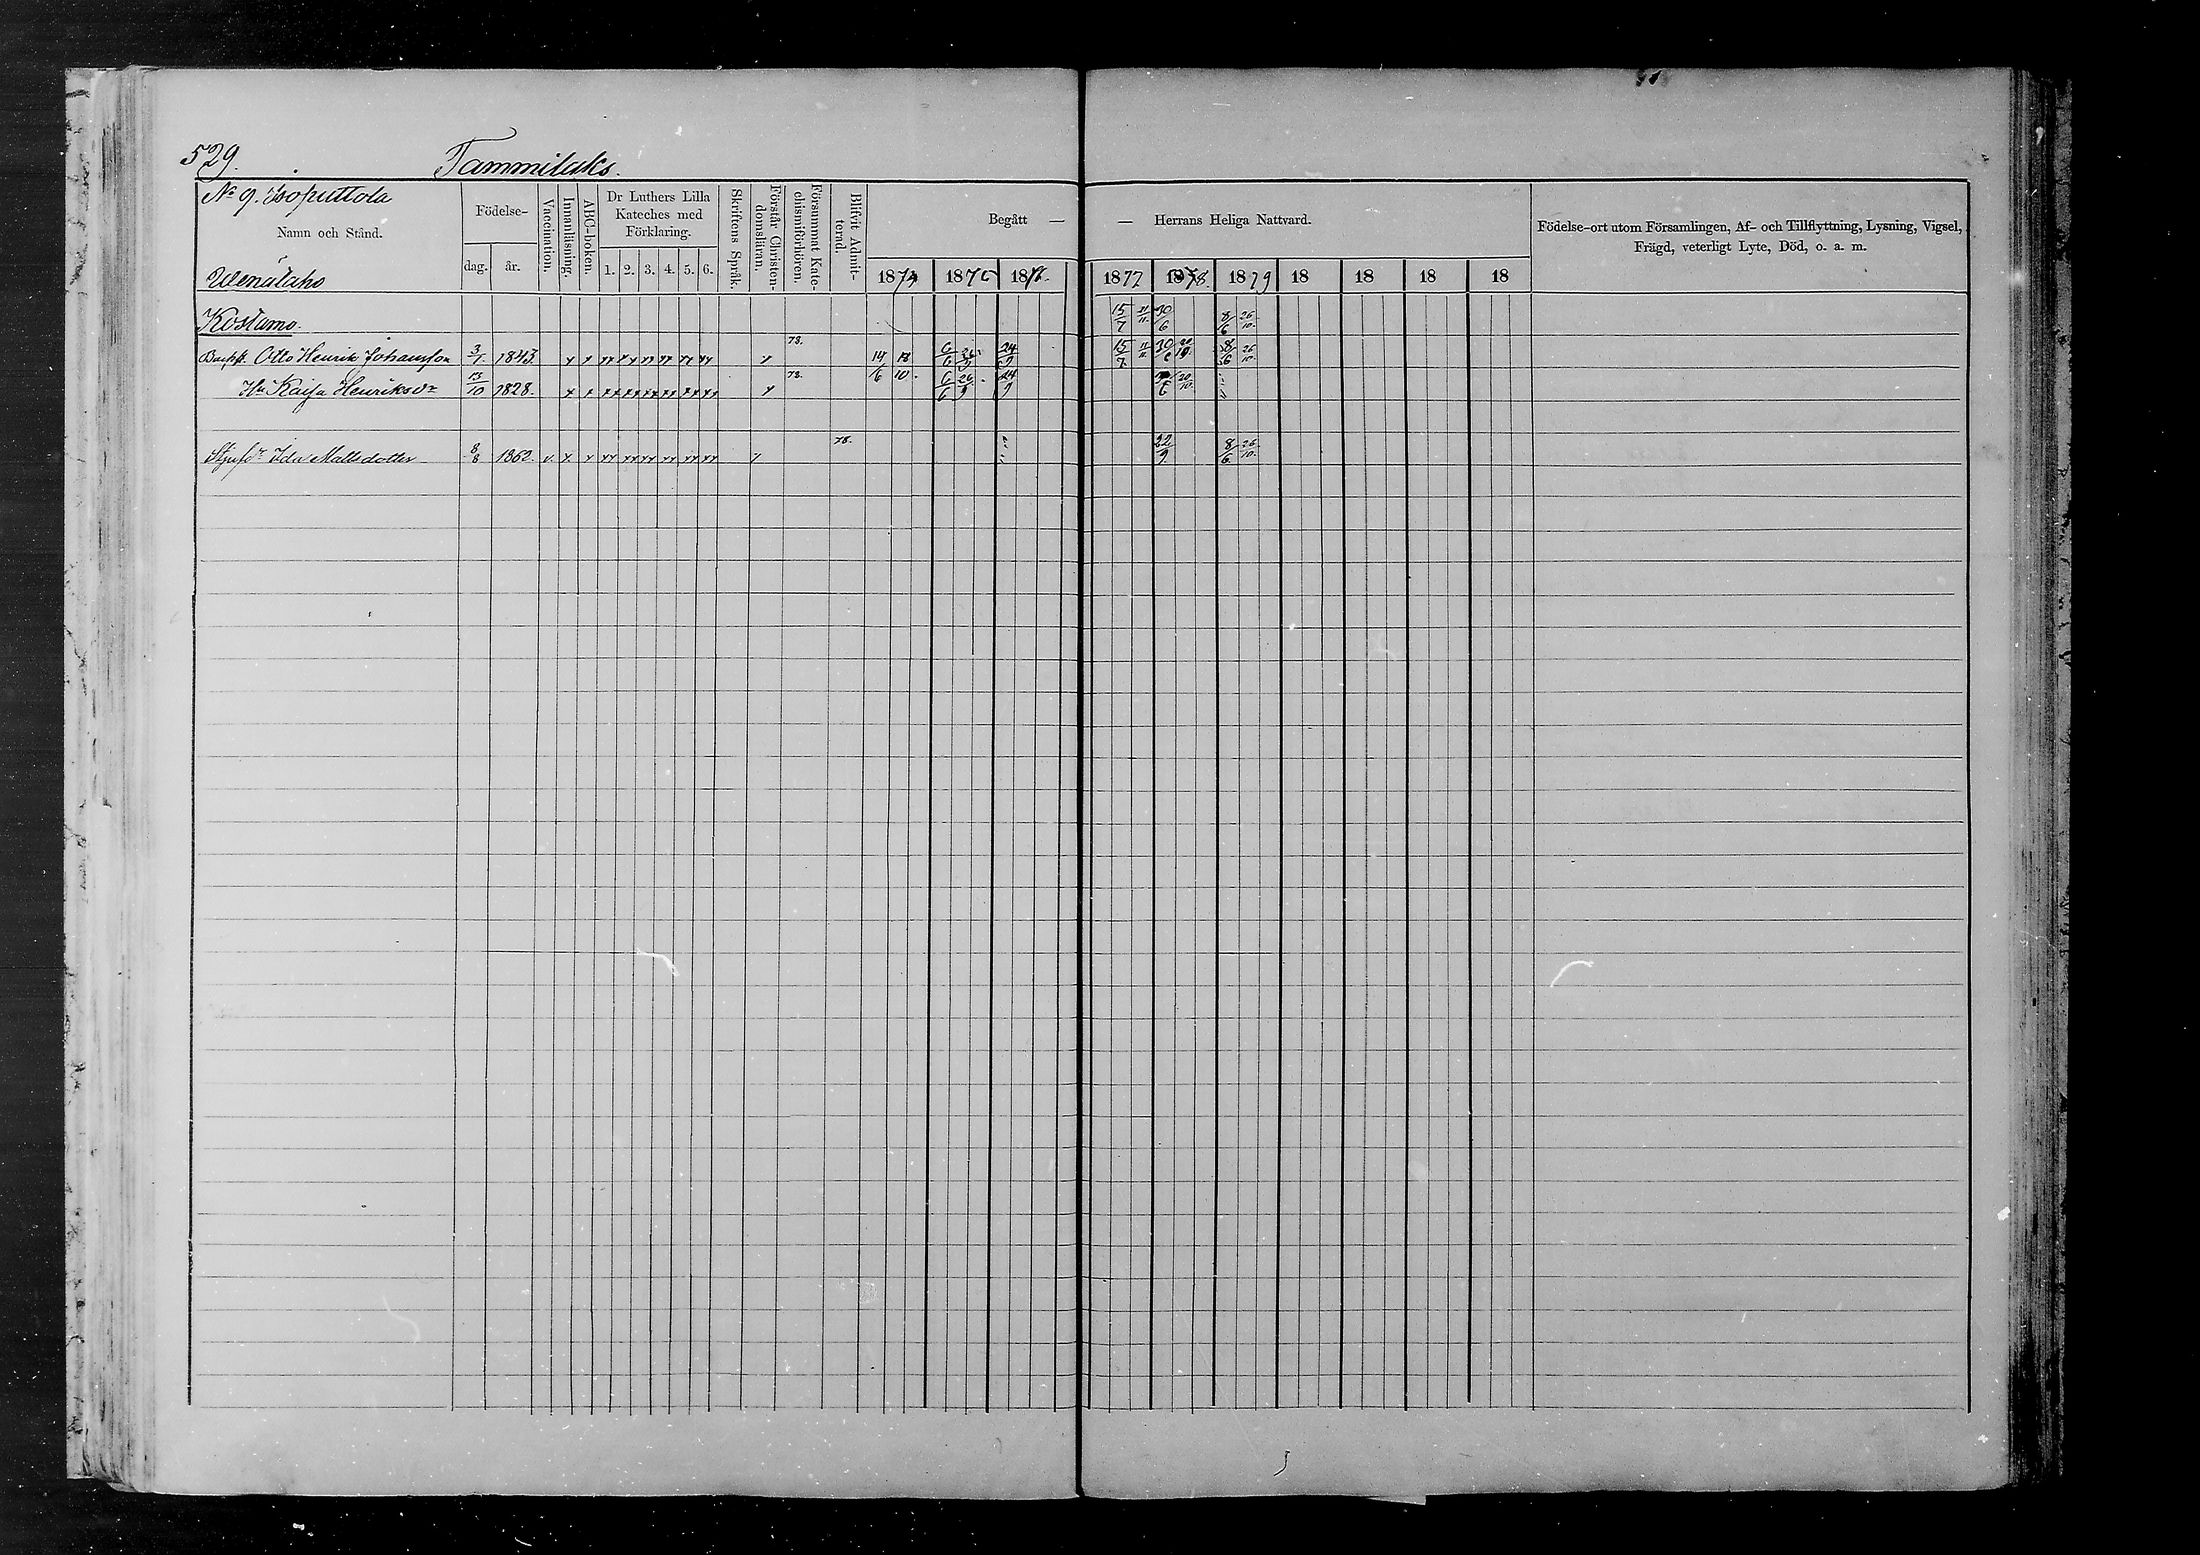 529.
Tammilaks.
No 9. Isoputtola
Namn och Stånd.
Födelse-
dag. år.
Vaccination.
Innanläsning.
ABC-boken.
Dr Luthers Lilla
Kateches med
Förklaring.
1. 2. 3. 4. 5. 6.
Skriftens Språk.
Förstår Christen-
domsläran.
Försummat Kate-
chismiförhören.
Blifvit Admit-
terad.
Begått —
— Herrans Heliga Nattvard.
1877 1878. 1879 18 18 18 18
Födelse-ort utom Församlingen, Af- och Tillflyttning, Lysning, Vigsel,
Frägd, veterligt Lyte, Död, o. a. m.
Kostamo.
15/7 11/11 30/6 8/6 26/10.
Otto Henrik Johansson 3/1 1843 x x xx xx xx xx xx xx x 73. 14 18 6/6 26/9 24/9 15/7 11/11 30/6 20/10 8/6 26/10
Hu Kaisa Henriksdr 13/10 1828. x x xx xx xx xx xx xx x 73. /6 10. 6/6 26/9 24/9 20/10.
Ida Mattsdotter 8/8 1862 v. x x xx xx xx xx xx x 78. 22/9 8/6 26/10.